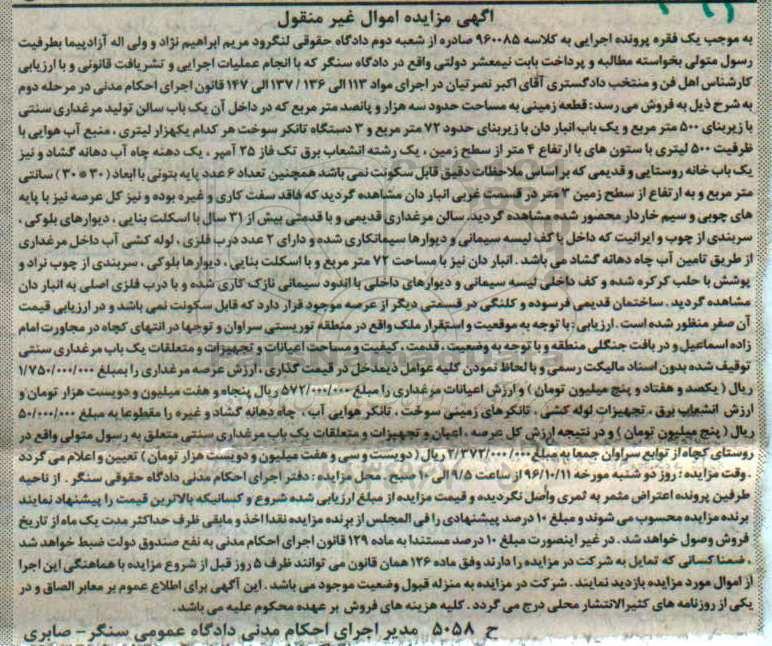 آگهی مزایده اموال غیر منقول
به موجب یک فقره پرونده اجرایی به کلاسه ۹۶۰۰۸۵ صادره از شعبه دوم دادگاه حقوقی لنگرود مریم ابراهیم نژاد و ولی اله آزادپیما بطرفیت
رسول متولی بخواسته مطالبه و پرداخت بابت نیمعشر دولتی واقع در دادگاه سنگر که با انجام عملیات اجرایی و تشریفات قانونی و با ارزیابی
کارشناس اهل فن و منتخب دادگستری آقای اکبر نصرتیان در اجرای مواد ۱۱۳ الی ۱۳۶ / ۱۳۷ الی ۱۴۷ قانون اجرای احکام مدنی در مرحله دوم
به شرح ذیل به فروش می رسد : قطعه زمینی به مساحت حدود سه هزار و پانصد متر مربع که در داخل آن یک باب سالن تولید مرغداری سنتی
با زیربنای ۵۰۰ متر مربع و یک باب انبار دان با زیربنای حدود ۷۲ متر مربع و ۳ دستگاه تانکر سوخت هر کدام یکهزار لیتری ، منبع آب هوایی با
ظرفیت ۵۰۰ لیتری با ستون های با ارتفاع ۴ متر از سطح زمین ، یک رشته انشعاب برق تک فاز ۲۵ آمپر ، یک دهنه چاه آب دهانه گشاد و نیز
یک باب خانه روستایی و قدیمی که بر اساس ملاحظات دقیق قابل سکونت نمی باشد همچنین تعداد ۶ عدد پایه بتونی با ابعاد ( ۳۰ * ۳۰ ) سانتی
متر مربع و به ارتفاع از سطح زمین ۳ متر در قسمت غربی انبار دان مشاهده گردید که فاقد سفت کاری و غیره بوده و نیز کل عرصه نیز با پایه
های چوبی و سیم خاردار محصور شده مشاهده گردید. سالن مرغداری قدیمی و با قدمتی بیش از ۳۱ سال با اسکلت بنایی ، دیوارهای بلوکی ،
سربندی از چوب و ایرانیت که داخل با کف لیسه سیمانی و دیوارها سیمانکاری شده و دارای ۲ عدد درب فلزی ، لوله کشی آب داخل مرغداری
از طریق تامین آب چاه دهانه گشاد می باشد . انبار دان نیز با مساحت ۷۲ متر مربع و با اسکلت بنایی ، دیوارها بلوکی ، سربندی از چوب نراد و
پوشش با حلب کرکره شده و کف داخلی لیسه سیمانی و دیوارهای داخلی با اندود سیمانی نازک کاری شده و با درب فلزی اصلی به انبار دان
مشاهده گردید . ساختمان قدیمی فرسوده و کلنگی در قسمتی دیگر از عرصه موجود قرار دارد که قابل سکونت نمی باشد و در ارزیابی قیمت
آن صفر منظور شده است . ارزیابی : با توجه به موقعیت و استقرار ملک واقع در منطقه توریستی سراوان و توجها در انتهای کچاه در مجاورت امام
زاده اسماعیل و در بافت جنگلی منطقه و با توجه به وضعیت ، قدمت ، کیفیت و مساحت اعیانات و تجهیزات و متعلقات یک باب مرغداری سنتی
توقیف شده بدون اسناد مالیکت رسمی و با لحاظ نمودن کلیه عوامل ذیمدخل در قیمت گذاری ، ارزش عرصه مرغداری را بمبلغ ۱/۷۵۰/۰۰۰/۰۰۰
ریال ( یکصد و هفتاد و پنج میلیون تومان ) و ارزش اعیانات مرغداری را مبلغ ۵۷۲/۰۰۰/۰۰۰ ریال پنجاه و هفت میلیون و دویست هزار تومان و
ارزش انشعاب برق ، تجهیزات لوله کشی ، تانکرهای زمینی سوخت ، تانکر هوایی آب ، چاه دهانه گشاد و غیره را مقطوعا به مبلغ ۵۰/۰۰۰/۰۰۰
ریال ( پنج میلیون تومان ) و در نتیجه ارزش کل عرصه ، اعیان و تجهیزات و متعلقات یک باب مرغداری سنتی متعلق به رسول متولی واقع در
روستای کچاه از توابع سراوان جمعا به مبلغ ۲/۳۷۲/۰۰۰/۰۰۰ ریال ( دویست و سی و هفت میلیون و دویست هزار تومان ) تعیین و اعلام می گردد
. وقت مزایده : روز دو شنبه مورخه ۹۶/۱۰/۱۱ از ساعت ۹/۵ الی ۱۰ صبح . محل مزایده : دفتر اجرای احکام مدنی دادگاه حقوقی سنگر . از ناحیه
طرفین پرونده اعتراض مثمر به ثمری واصل نگردیده و قیمت مزایده از مبلغ ارزیابی شده شروع و کسانیکه بالاترین قیمت را پیشنهاد نمایند
برنده مزایده محسوب می شوند و مبلغ ۱۰ درصد پیشنهادی را فی المجلس از برنده مزایده نقدا اخذ و مابقی ظرف حداکثر مدت یک ماه از تاریخ
فروش وصول خواهد شد . در غیر اینصورت مبلغ ۱۰ درصد مستندا به ماده ۱۲۹ قانون اجرای احکام مدنی به نفع صندوق دولت ضبط خواهد شد
، ضمنا کسانی که تمایل به شرکت در مزایده را دارند وفق ماده ۱۲۶ همان قانون می توانند ظرف ۵ روز قبل از شروع مزایده با هماهنگی این اجرا
از اموال مورد مزایده بازدید نمایند . شرکت در مزایده به منزله قبول وضعیت موجود می باشد . این آگهی برای اطلاع عموم بر معابر الصاق و در
یکی از روزنامه های کثیرالانتشار محلی درج می گردد . کلیه هزینه های فروش بر عهده محکوم علیه می باشد .
ح ۵۰۵۸ مدیر اجرای احکام مدنی دادگاه عمومی سنگر - صابری